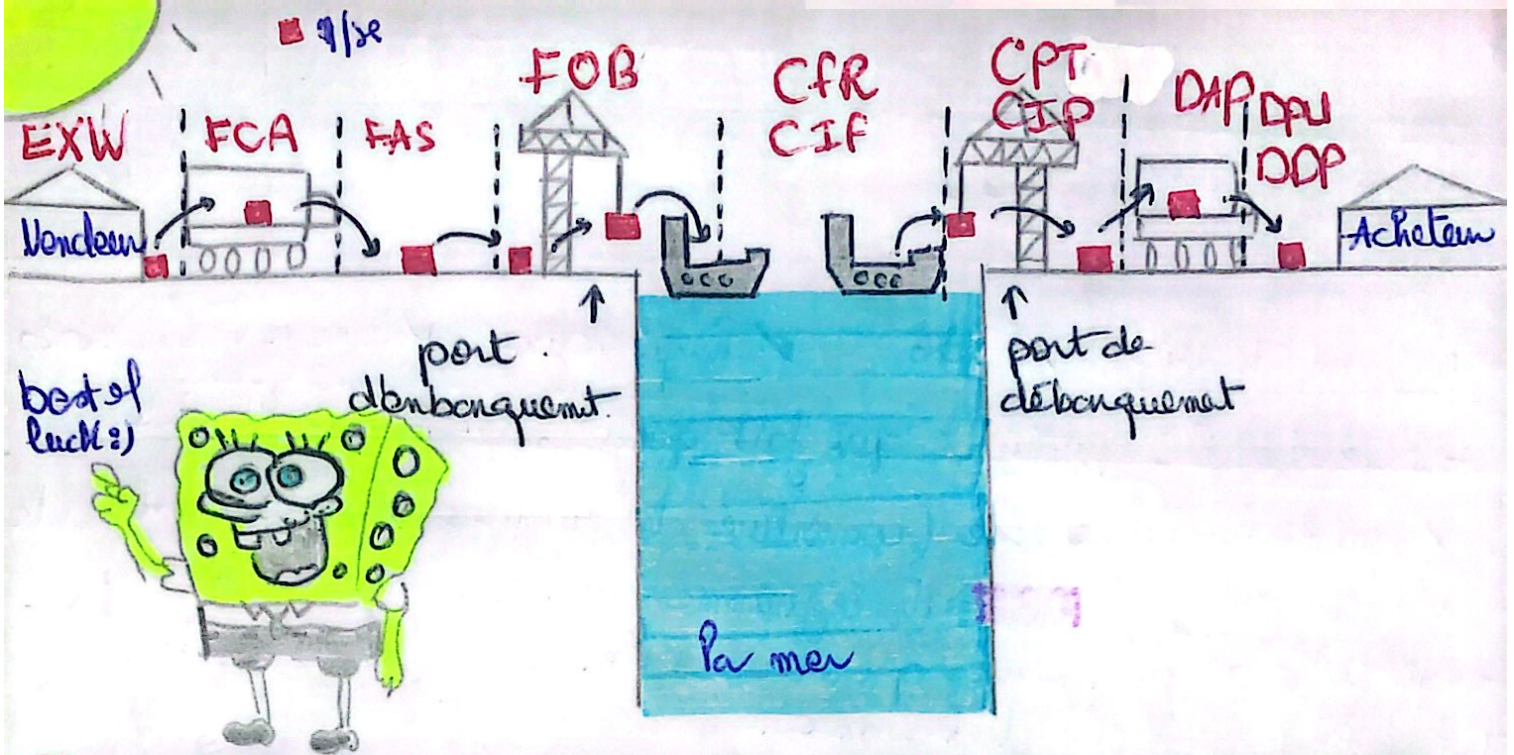 M/se
EXW
FCA
FAS
FOB
CfR
CIF
CPT
CIP
DAP
DPU
DDP
Vendeur
Acheteur
port
d'enbarquemt.
port de
débarquemat
best of
luck :)
la mer